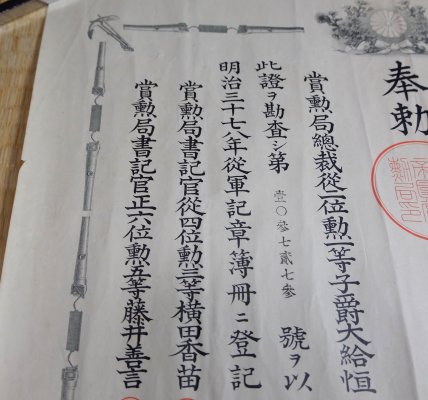 奉勅
賞勲局總裁從二位勲一等子爵大給恒
此證ヲ勘査シ第壹〇參七貳七參號ヲ以
明治三十七八年從軍記章簿冊ニ登記
賞勲局書記官從四位勲三等横田香苗
賞勲局書記官正六位勲五等藤井善言